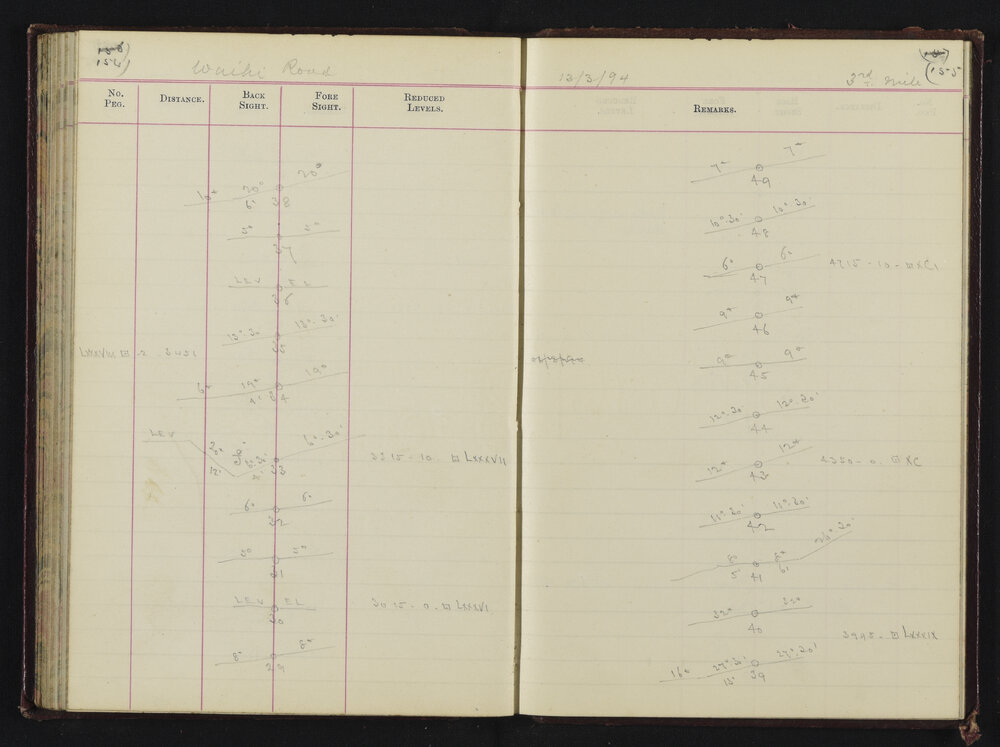 156)
Waihi Road
No. Peg. Distance. Back Sight. Fore Sight. Reduced Levels.
10° 20° 20°
6' 38
5° 5°
37
LEV EL
36
13°.30 13°.30'
35
LXXXVIII ⊡ -2
6° 19° 19°
4' 34
LEV
20° 6°.30' 6°.30'
12' 4' 33
3315-10. ⊡ LXXXVII
6° 6°
32
5° 5°
31
LEV EL
30
3015-0. ⊡ LXXXVI
8° 8°
29
13/3/94
3rd mile
(155
Remarks.
7° 7°
49
10°.30' 10°.30'
48
6° 6°
47
4715-10-⊡XCI
9° 9°
46
9° 9°
45
12°.30' 12°.30'
44
12° 12°
43
4350-0. ⊡XC
11°.30' 11°.30'
42
8° 8°
5' 41 6'
32° 32°
40
3995-⊡LXXXIX
16° 27°.30' 27°.30'
13' 39